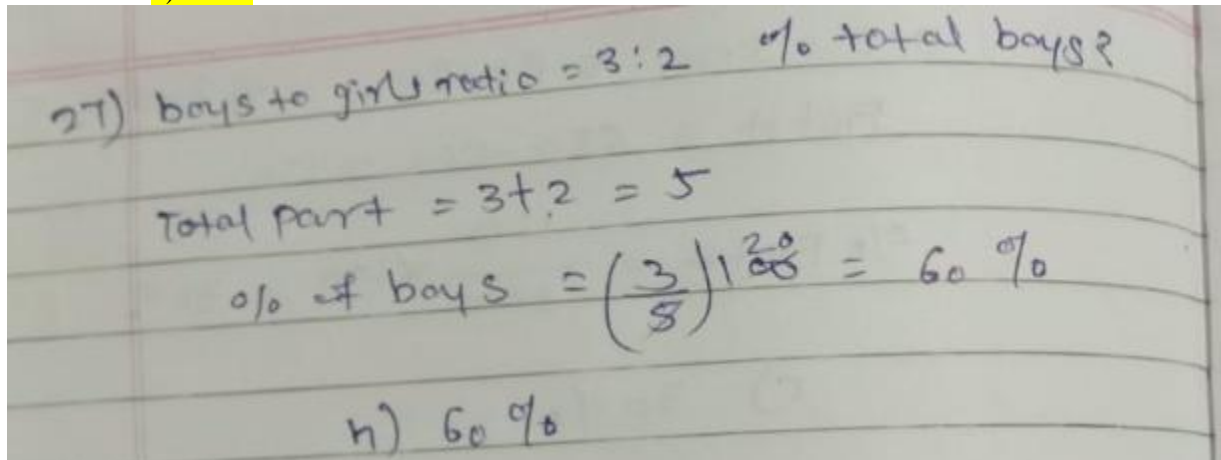 27) boys to girls ratio = 3:2 % total boys?
Total part = 3+2 = 5
% of boys = (3/5) 100 20 = 60 %
h) 60 %